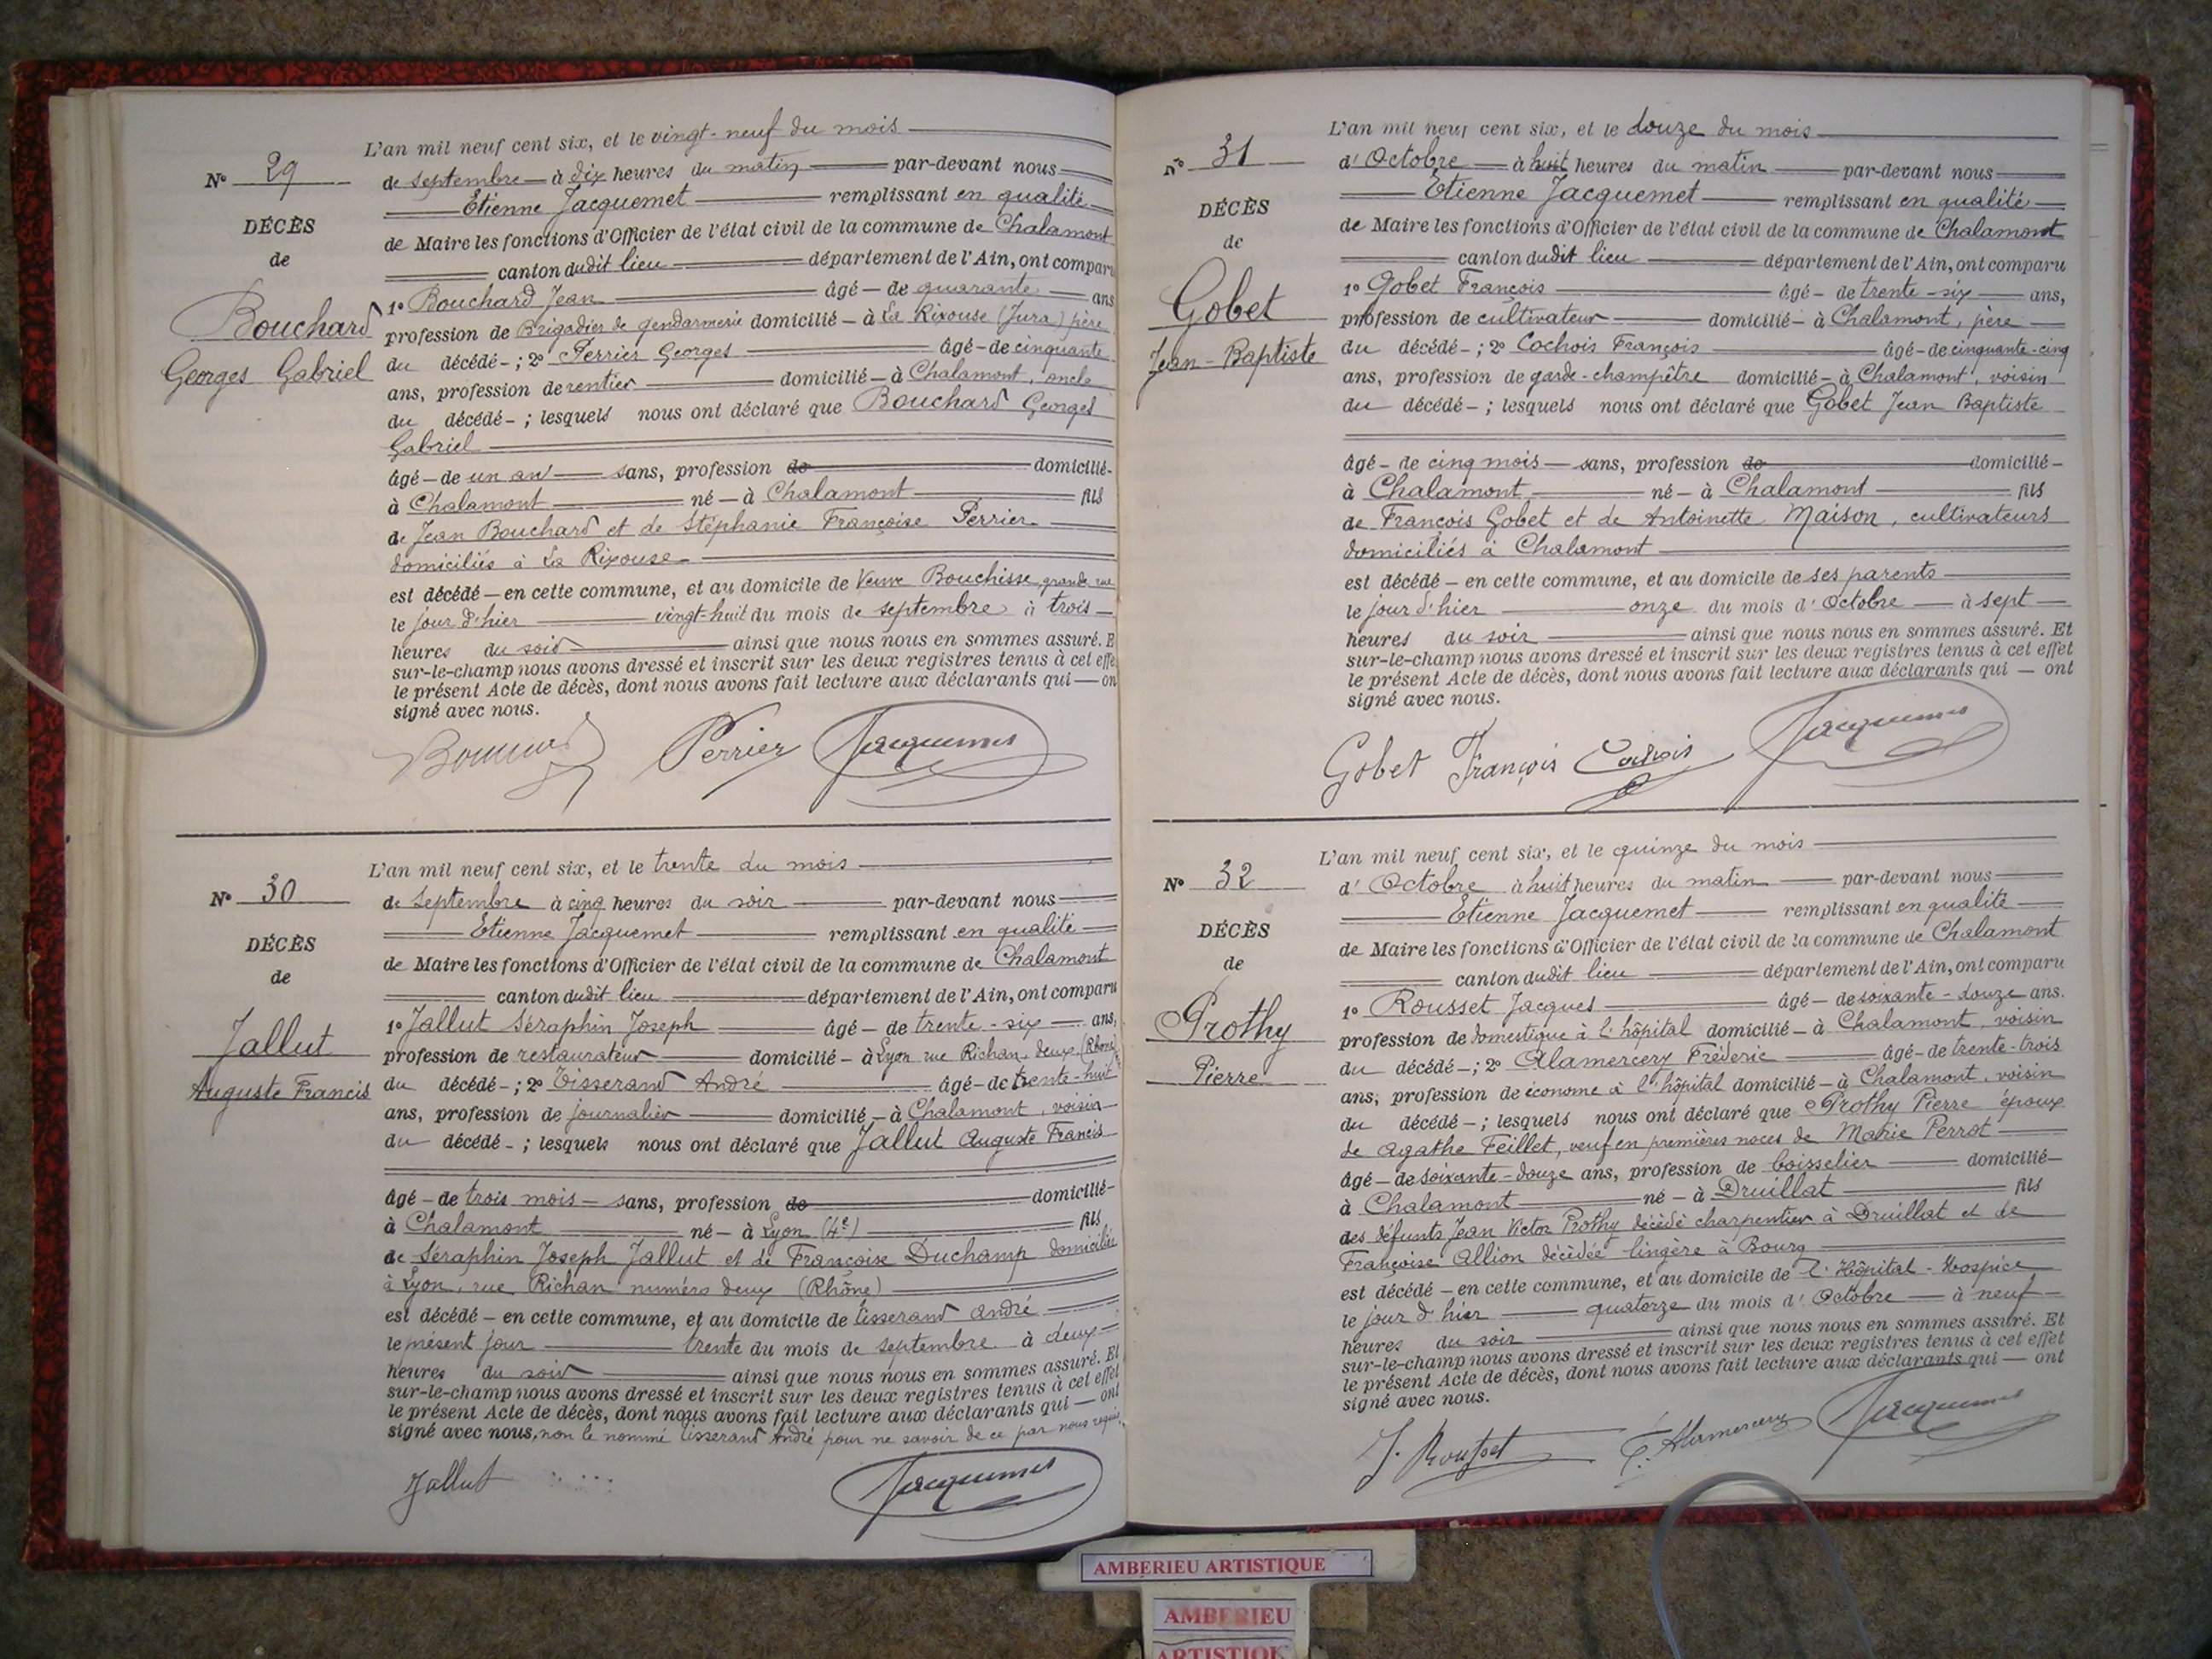 N° 29
DÉCÈS
de
Bouchard
Georges Gabriel
L'an mil neuf cent six, et le vingt-neuf du mois
de septembre à dix heures du matin par-devant nous
Etienne Jacquemet remplissant en qualité
de Maire les fonctions d'Officier de l'état civil de la commune de Chalamont
canton dudit lieu département de l'Ain, ont comparu
1° Bouchard Jean âgé de quarante ans
profession de Brigadier de gendarmerie domicilié à La Rixouse (Jura) père
du décédé ; 2° Perrier Georges âgé de cinquante
ans, profession de rentier domicilié à Chalamont, oncle
du décédé ; lesquels nous ont déclaré que Bouchard Georges
Gabriel
âgé de un an sans, profession de domicilié
à Chalamont né à Chalamont fils
de Jean Bouchard et de Stéphanie Françoise Perrier
domiciliés à La Rixouse
est décédé en cette commune, et au domicile de Veuve Bouchisse, grande rue
le jour d'hier vingt-huit du mois de septembre à trois
heures du soir ainsi que nous nous en sommes assuré. E
sur-le-champ nous avons dressé et inscrit sur les deux registres tenus à cet effe
le présent Acte de décès, dont nous avons fait lecture aux déclarants qui on
signé avec nous.
Perrier Jacquemet
N° 30
DÉCÈS
de
Jallut
Auguste Francis
L'an mil neuf cent six, et le trente du mois
de septembre à cinq heures du soir par-devant nous
Etienne Jacquemet remplissant en qualité
de Maire les fonctions d'Officier de l'état civil de la commune de Chalamont
canton dudit lieu département de l'Ain, ont comparu
1° Jallut Séraphin Joseph âgé de trente-six ans,
profession de restaurateur domicilié à Lyon rue Richan, deux (Rhône)
du décédé ; 2° Tisserand André âgé de trente-huit
ans, profession de journalier domicilié à Chalamont, voisin
du décédé ; lesquels nous ont déclaré que Jallut Auguste Francis
âgé de trois mois sans, profession de domicilié
à Chalamont né à Lyon (4e) fils
de Séraphin Joseph Jallut et de Françoise Duchamp domiciliés
à Lyon, rue Richan numéro deux (Rhône)
est décédé en cette commune, et au domicile de Tisserand André
le présent jour trente du mois de septembre à deux
heures du soir ainsi que nous nous en sommes assuré. Et
sur-le-champ nous avons dressé et inscrit sur les deux registres tenus à cet effet
le présent Acte de décès, dont nous avons fait lecture aux déclarants qui ont
signé avec nous, non le nommé Tisserand André pour ne savoir de ce par nous requis.
Jallut Jacquemet
N° 31
DÉCÈS
de
Gobet
Jean-Baptiste
L'an mil neuf cent six, et le douze du mois
d'Octobre à huit heures du matin par-devant nous
Etienne Jacquemet remplissant en qualité
de Maire les fonctions d'Officier de l'état civil de la commune de Chalamont
canton dudit lieu département de l'Ain, ont comparu
1° Gobet François âgé de trente-six ans,
profession de cultivateur domicilié à Chalamont, père
du décédé ; 2° Cochois François âgé de cinquante-cinq
ans, profession de garde-champêtre domicilié à Chalamont, voisin
du décédé ; lesquels nous ont déclaré que Gobet Jean Baptiste
âgé de cinq mois sans, profession de domicilié
à Chalamont né à Chalamont fils
de François Gobet et de Antoinette Maison, cultivateurs
domiciliés à Chalamont
est décédé en cette commune, et au domicile de ses parents
le jour d'hier onze du mois d'Octobre à sept
heures du soir ainsi que nous nous en sommes assuré. Et
sur-le-champ nous avons dressé et inscrit sur les deux registres tenus à cet effet
le présent Acte de décès, dont nous avons fait lecture aux déclarants qui ont
signé avec nous.
Gobet François Cochois Jacquemet
N° 32
DÉCÈS
de
Prothy
Pierre
L'an mil neuf cent six, et le quinze du mois
d'Octobre à huit heures du matin par-devant nous
Etienne Jacquemet remplissant en qualité
de Maire les fonctions d'Officier de l'état civil de la commune de Chalamont
canton dudit lieu département de l'Ain, ont comparu
1° Rousset Jacques âgé de soixante-douze ans.
profession de domestique à l'hôpital domicilié à Chalamont, voisin
du décédé ; 2° Alamercery Fréderic âgé de trente-trois
ans, profession de économe à l'hôpital domicilié à Chalamont, voisin
du décédé ; lesquels nous ont déclaré que Prothy Pierre époux
de Agathe Feillet, veuf en premières noces de Marie Perrot
âgé de soixante-douze ans, profession de boisselier domicilié
à Chalamont né à Druillat fils
des défunts Jean Victor Prothy décédé charpentier à Druillat et de
Françoise Allion décédée lingère à Bourg
est décédé en cette commune, et au domicile de l'Hôpital-Hospice
le jour d'hier quatorze du mois d'Octobre à neuf
heures du soir ainsi que nous nous en sommes assuré. Et
sur-le-champ nous avons dressé et inscrit sur les deux registres tenus à cet effet
le présent Acte de décès, dont nous avons fait lecture aux déclarants qui ont
signé avec nous.
J. Rousset F. Alamercery Jacquemet
AMBERIEU ARTISTIQUE
AMBERIEU
ARTISTIQUE